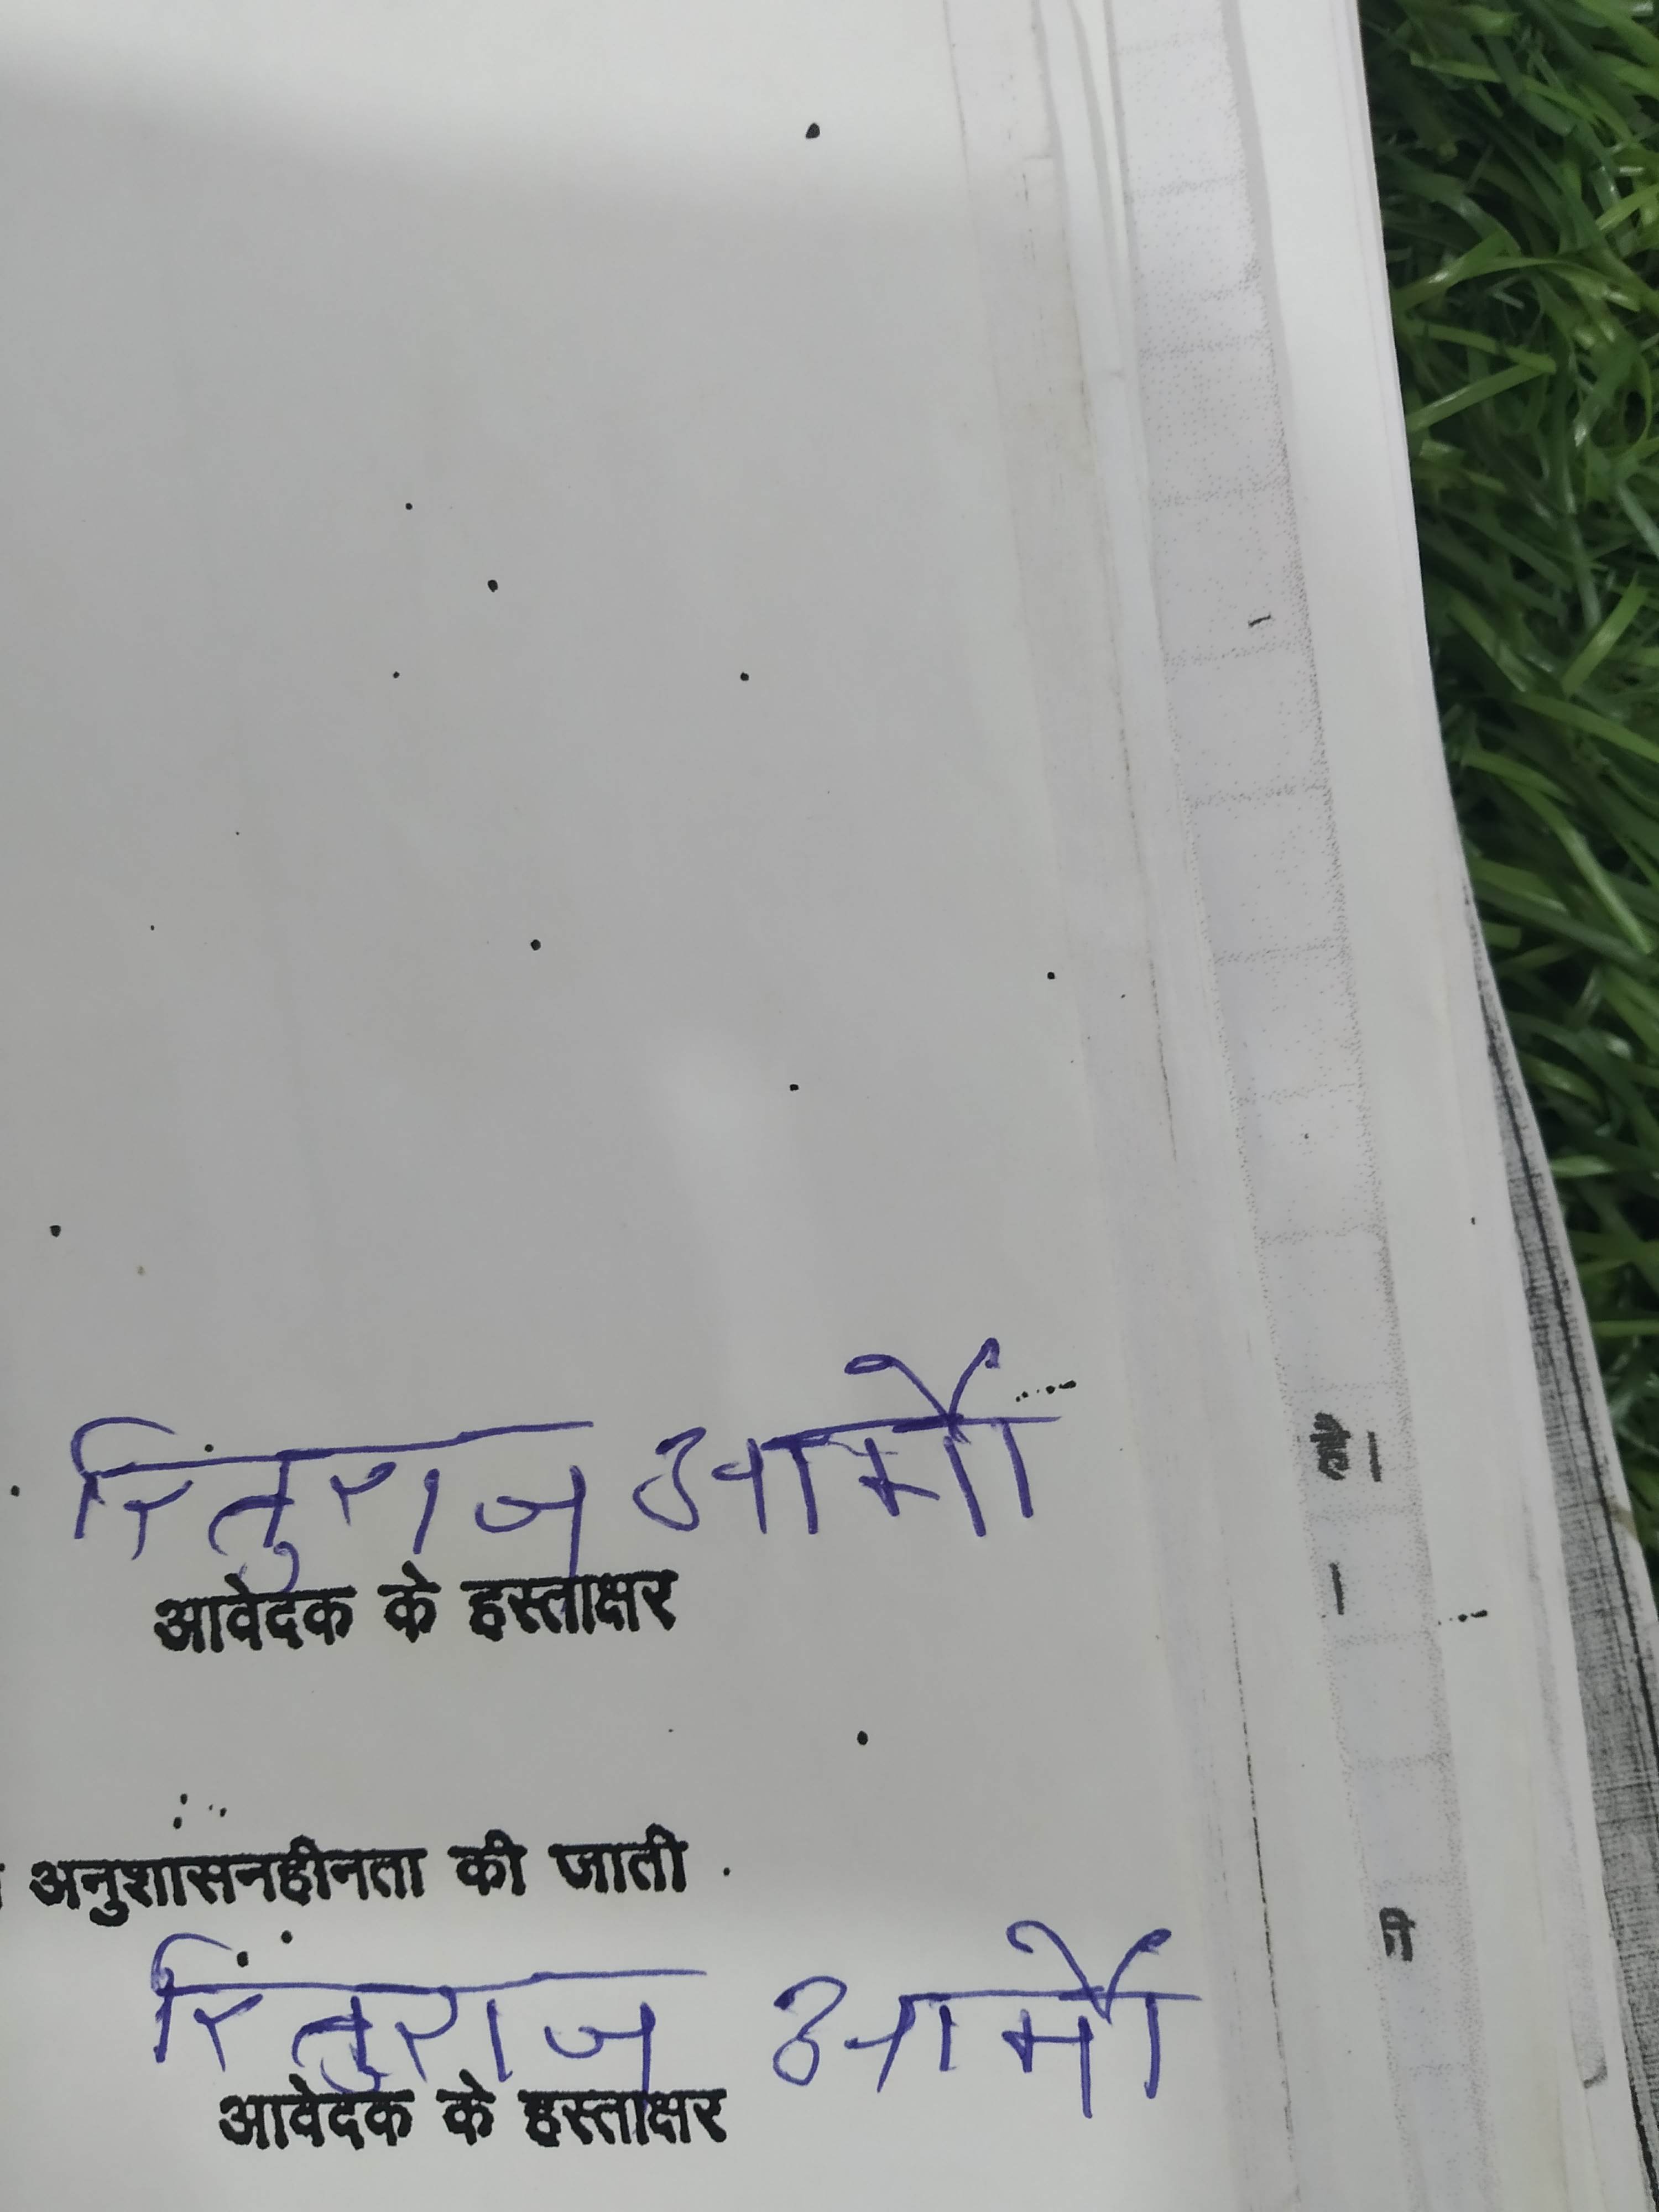 रितुराज आर्मो
है।
आवेदक के हस्ताक्षर
।
अनुशासनहीनता की जाती
री
रितुराज आर्मो
आवेदक के हस्ताक्षर